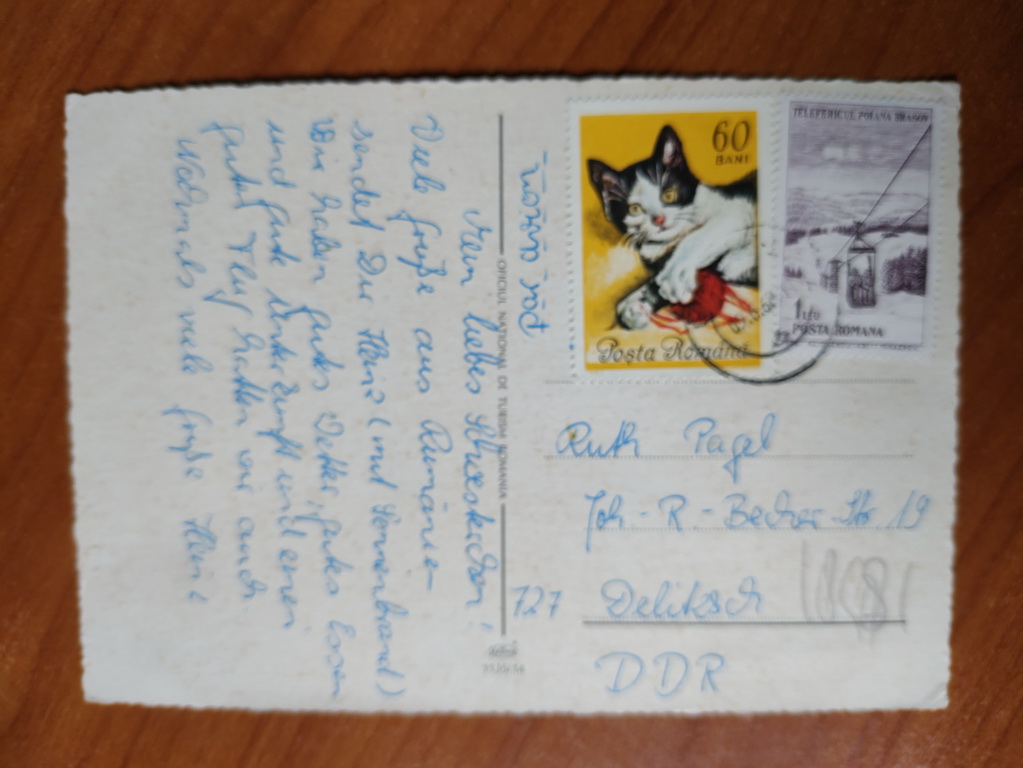 Mein liebes
Viele Grüße aus Rumänien
sendet Dir Heinz (mit Sonnenbrand)
Wir haben gutes Wetter, gutes Essen
und gute Unterkunft und einen
guten Flug hatten wir auch.
Nochmals viele Grüße Heinz
OFICIUL NATIONAL DE TURISM ROMANIA
60
BANI
Poşta Română
TELEFERICUL POIANA BRASOV
1 LEU
POSTA ROMANA
Ruth Pagel
Joh-R-Becher-Str 19
727 Delitzsch
DDR